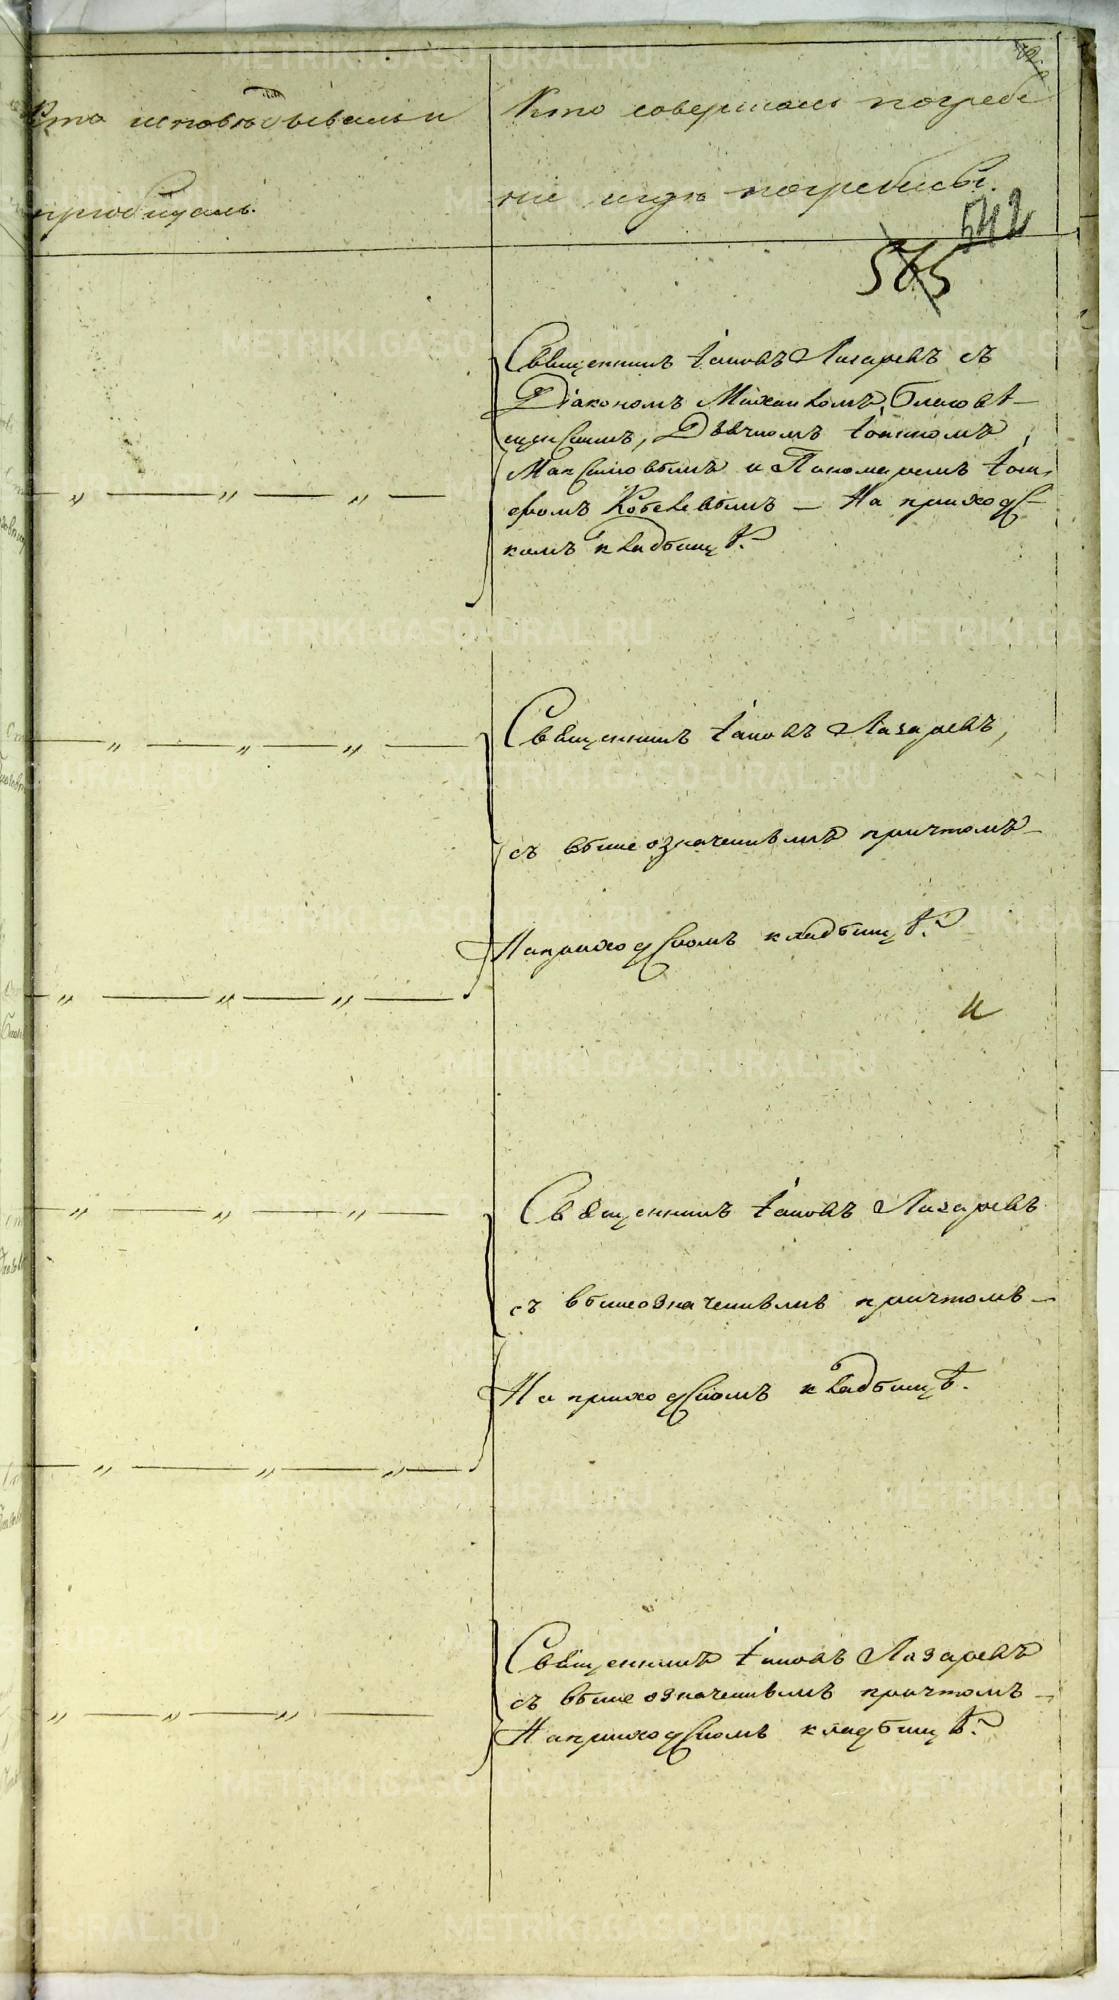 Кто исповѣдывалъ и
приобщалъ.
Кто совершалъ погребе
ніе и гдѣ погребены.
542
565
Священникъ Іаковъ Лазаревъ съ
Діакономъ Михаиломъ Благовѣ-
щенскимъ, Дьячкомъ Іоанномъ
Максимовымъ и Пономаремъ Іоси-
фомъ Кобелевымъ — На приход-
скомъ кладбищѣ.
Священникъ Іаковъ Лазаревъ,
съ вышеозначеннымъ причтомъ —
На приходскомъ кладбищѣ.
и
Священникъ Іаковъ Лазаревъ
съ вышеозначеннымъ причтомъ —
На приходскомъ кладбищѣ.
Священникъ Іаковъ Лазаревъ
съ вышеозначеннымъ причтомъ —
На приходскомъ кладбищѣ.
METRIKI.GASO-URAL.RU